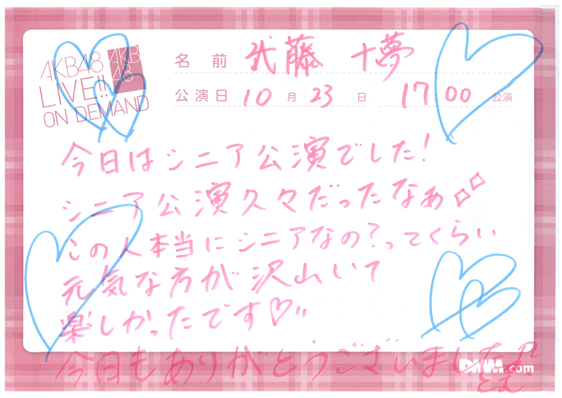 AKB48
LIVE!!
ON DEMAND
AKB
48
名前 武藤 十夢
公演日 10月23日 17:00公演
今日はシニア公演でした!
シニア公演久々だったなぁ
この人本当にシニアなの?ってくらい
元気な方が沢山いて
楽しかったです♡"
今日もありがとうございました
とむ
DMM.com